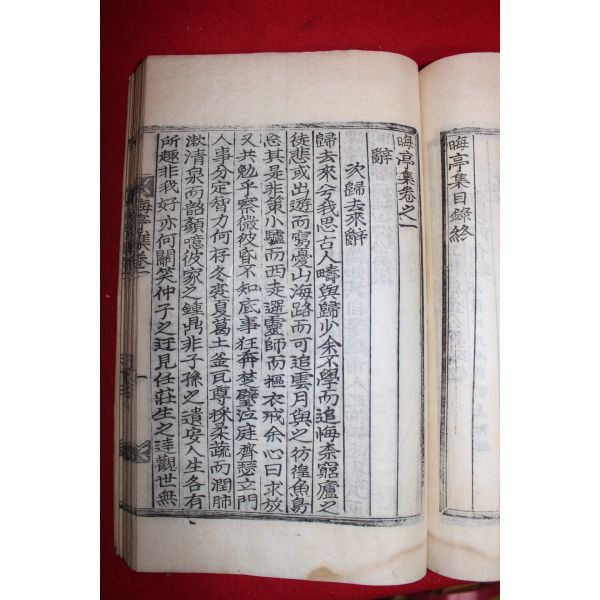 晦亭集目錄終
晦亭集卷之一
辭
次歸去來辭
歸去來兮我思古人疇與歸少余不學而追悔柰窮廬之
徒悲或出遊而寫憂山海路而可追雲月與之彷徨魚鳥
忘其是非策小驢而西走選靈師而摳衣戒余心曰求放
又共勉乎察微彼昏不知底事狂奔楚璧泣庭齊瑟立門
人事分定智力何存冬裘夏葛土釜瓦尊採柔蔬而潤肺
漱清泉而韶顔噫彼家之鍾鼎非子孫之遺安人生各有
所趣非我好亦何關笑仲子之迂見任莊生之達觀世無
晦亭集卷一
一